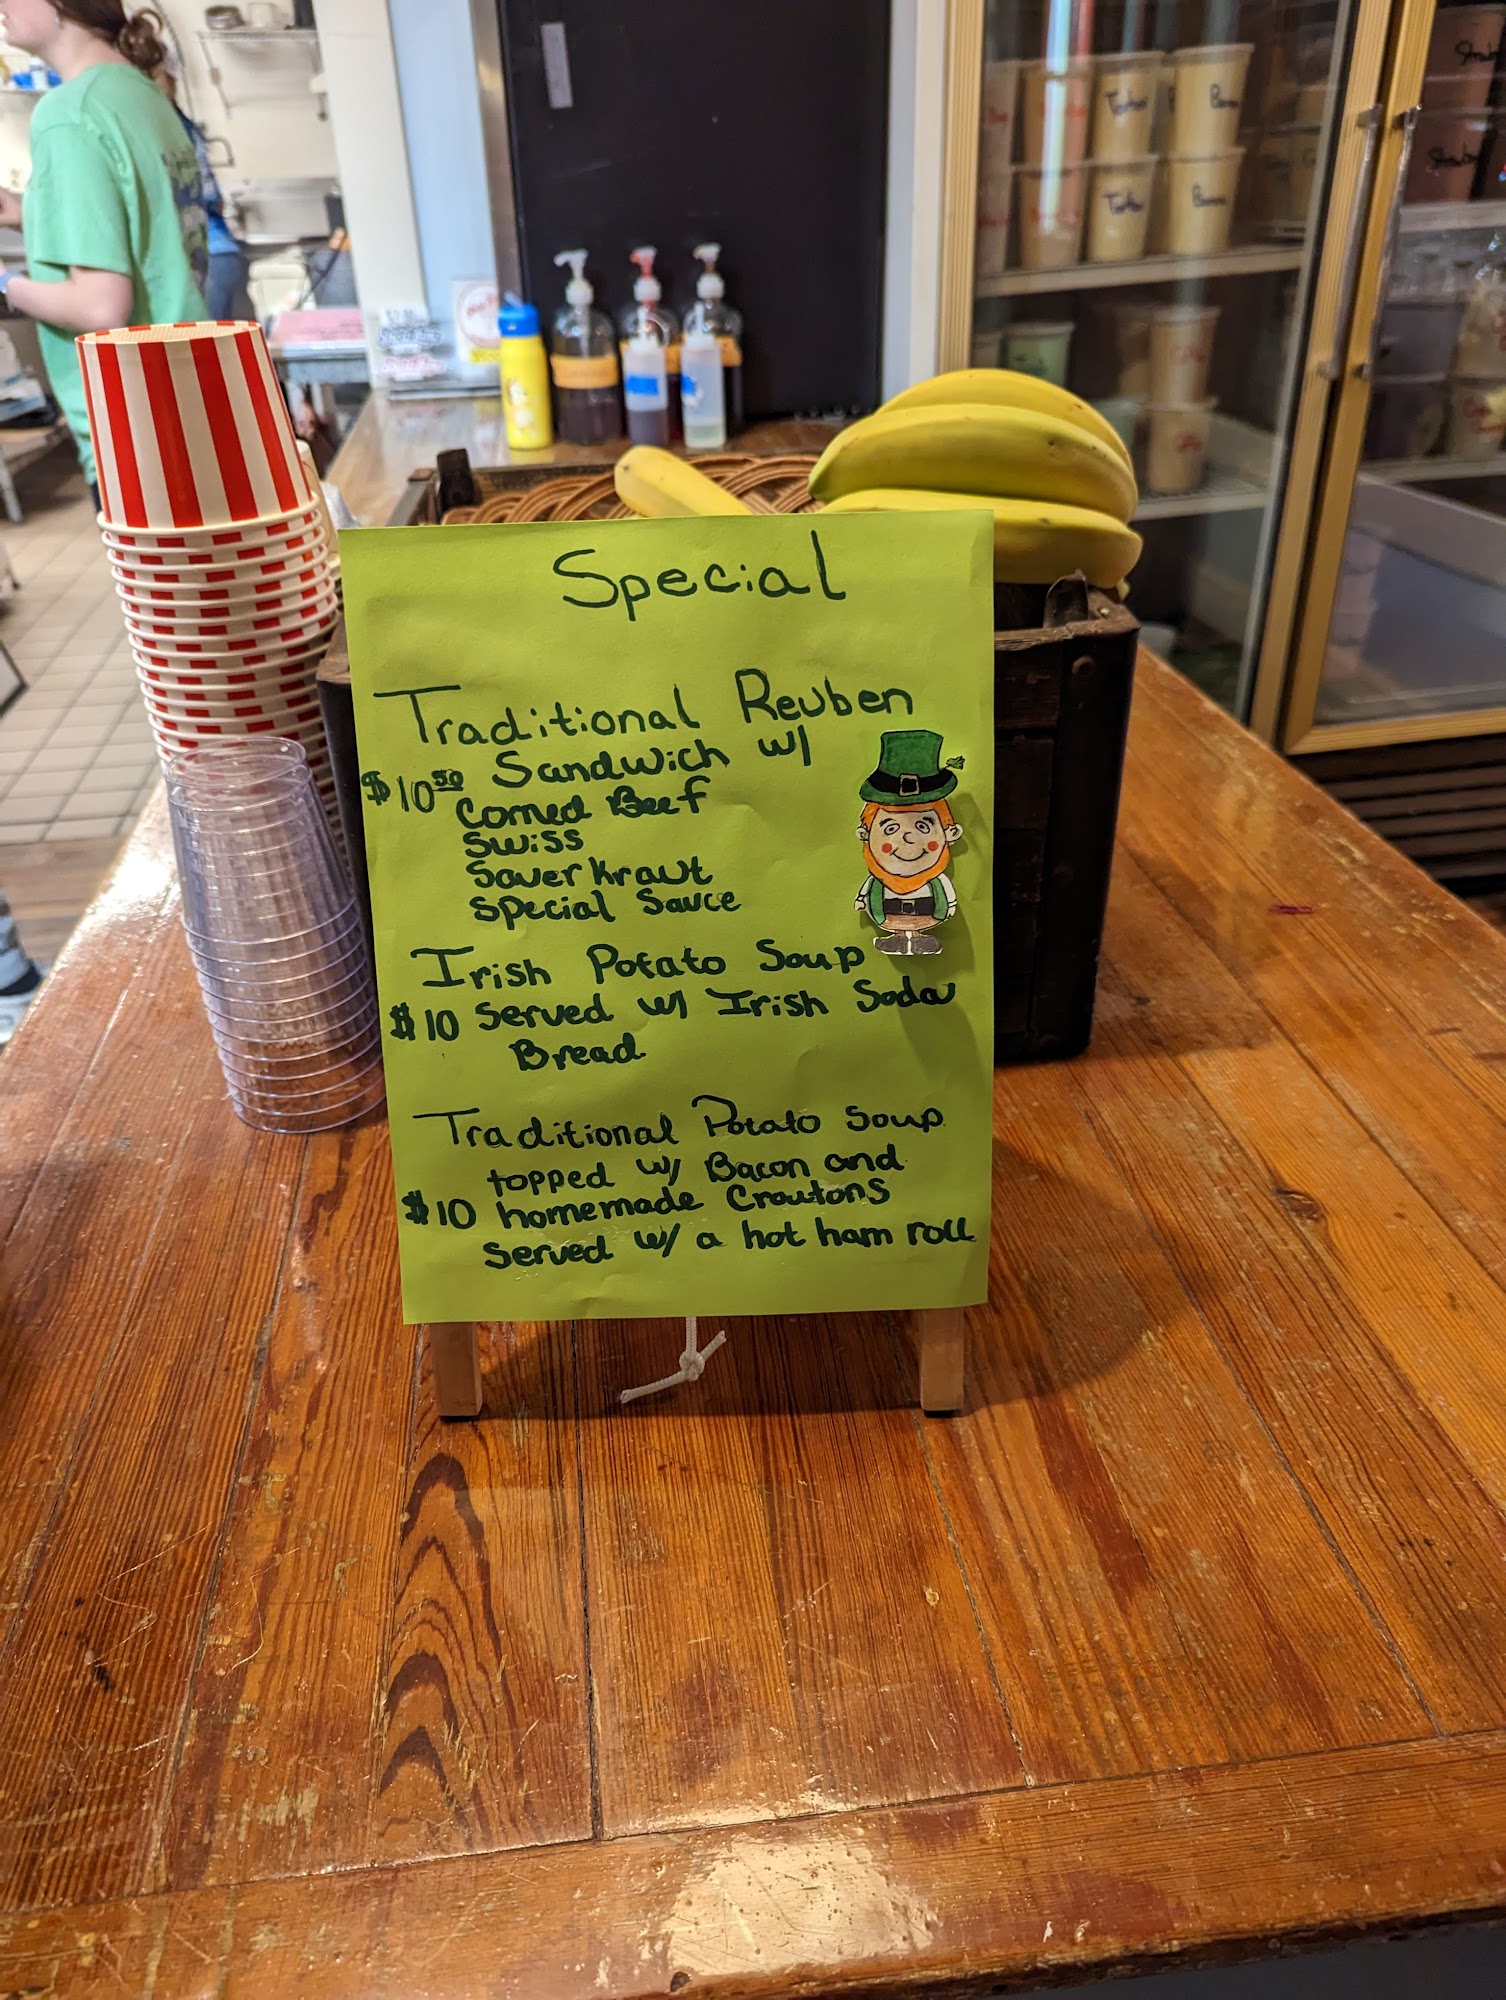 Special
Traditional Reuben
$10.50 Sandwich w/
Corned Beef
Swiss
Sauerkraut
Special Sauce
Irish Potato Soup
$10 Served w/ Irish Soda
Bread
Traditional Potato Soup
topped w/ Bacon and
$10 homemade Croutons
Served w/ a hot ham roll